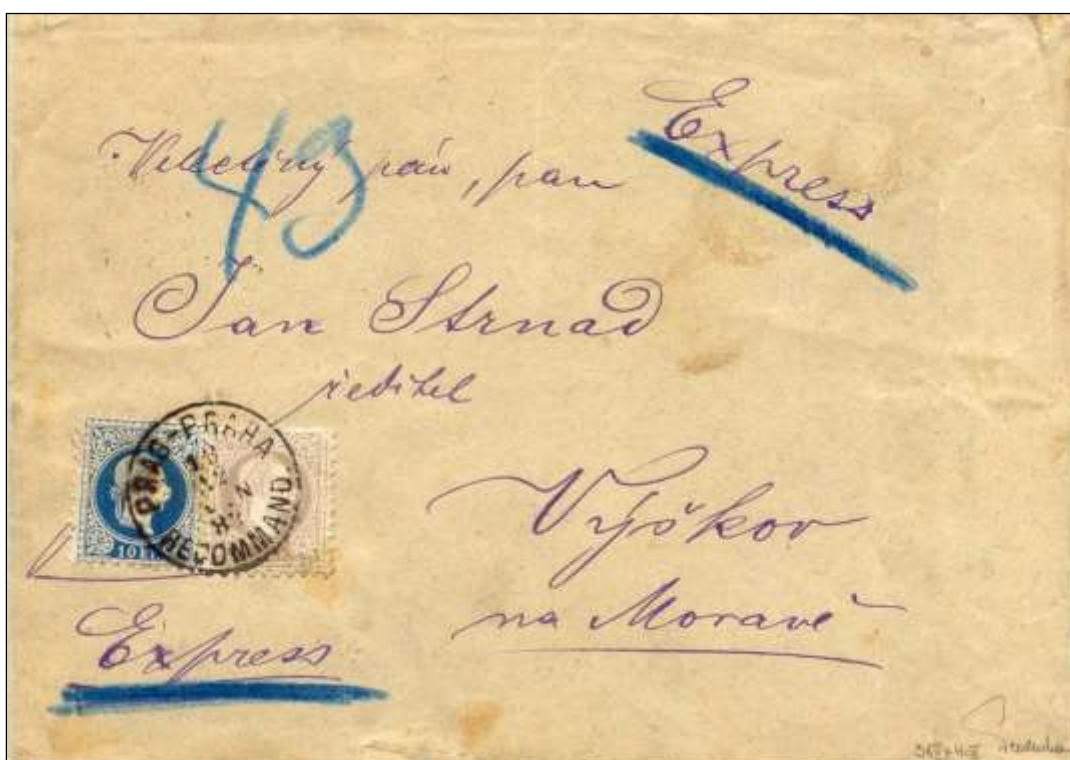 Express
49
Velectěný pán, pan
Jan Strnad
ředitel
PRAG-PRAHA
RECOMMAND
10
Výškov
na Moravě
Express